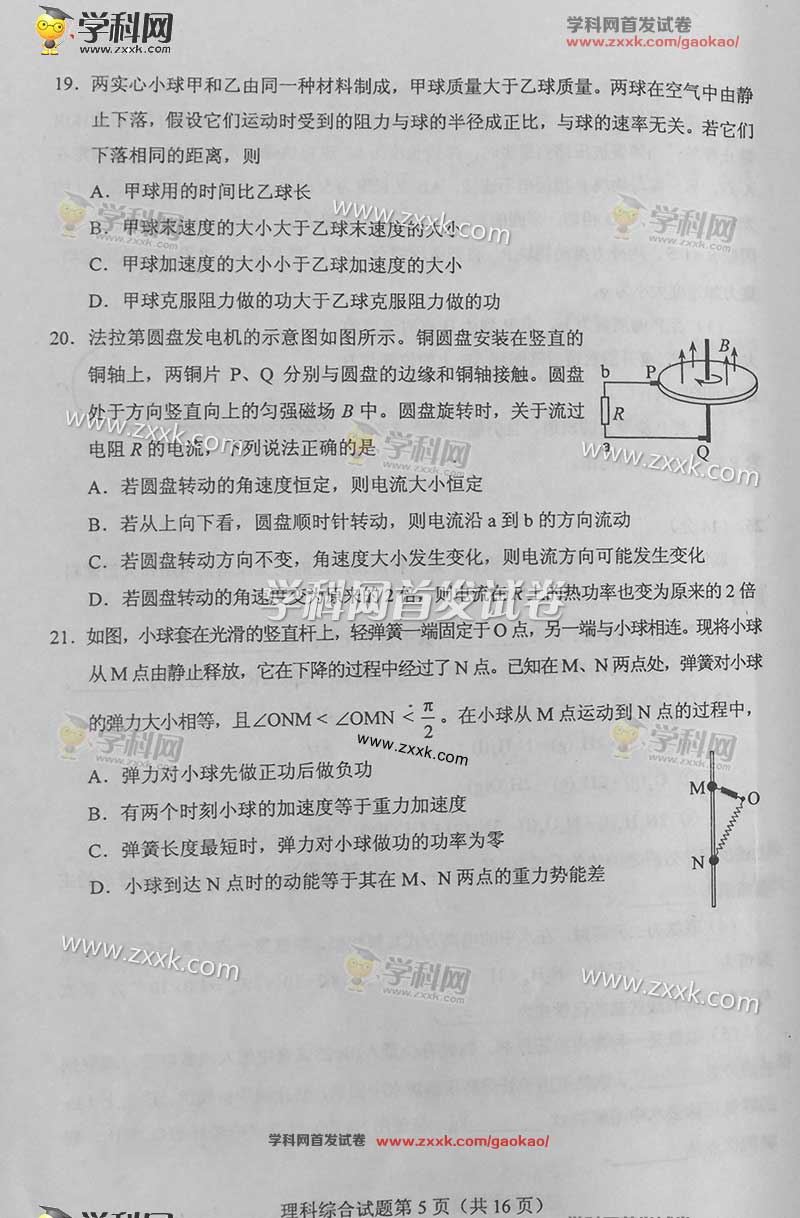 学科网
www.zxxk.com
学科网首发试卷
www.zxxk.com/gaokao/
19. 两实心小球甲和乙由同一种材料制成，甲球质量大于乙球质量。两球在空气中由静
止下落，假设它们运动时受到的阻力与球的半径成正比，与球的速率无关。若它们
下落相同的距离，则
A. 甲球用的时间比乙球长
B. 甲球末速度的大小大于乙球末速度的大小
C. 甲球加速度的大小小于乙球加速度的大小
D. 甲球克服阻力做的功大于乙球克服阻力做的功
学科网
zxxk.com
www.zxxk.com
学科网
zxxk.com
20. 法拉第圆盘发电机的示意图如图所示。铜圆盘安装在竖直的
铜轴上，两铜片 P、Q 分别与圆盘的边缘和铜轴接触。圆盘
处于方向竖直向上的匀强磁场 B 中。圆盘旋转时，关于流过
电阻 R 的电流，下列说法正确的是
A. 若圆盘转动的角速度恒定，则电流大小恒定
B. 若从上向下看，圆盘顺时针转动，则电流沿 a 到 b 的方向流动
C. 若圆盘转动方向不变，角速度大小发生变化，则电流方向可能发生变化
D. 若圆盘转动的角速度变为原来的2倍，则电流在 R 上的热功率也变为原来的2倍
b
P
B
R
a
Q
www.zxxk.com
学科网
zxxk.com
www.zxxk.com
学科网首发试卷
21. 如图，小球套在光滑的竖直杆上，轻弹簧一端固定于O点，另一端与小球相连。现将小球
从M点由静止释放，它在下降的过程中经过了N点。已知在M、N两点处，弹簧对小球
的弹力大小相等，且∠ONM < ∠OMN < π/2。在小球从M点运动到N点的过程中，
A. 弹力对小球先做正功后做负功
B. 有两个时刻小球的加速度等于重力加速度
C. 弹簧长度最短时，弹力对小球做功的功率为零
D. 小球到达N点时的动能等于其在M、N两点的重力势能差
M
O
N
学科网
zxxk.com
www.zxxk.com
学科网
zxxk.com
www.zxxk.com
学科网
zxxk.com
www.zxxk.com
学科网首发试卷
www.zxxk.com/gaokao/
理科综合试题第 5 页（共 16 页）